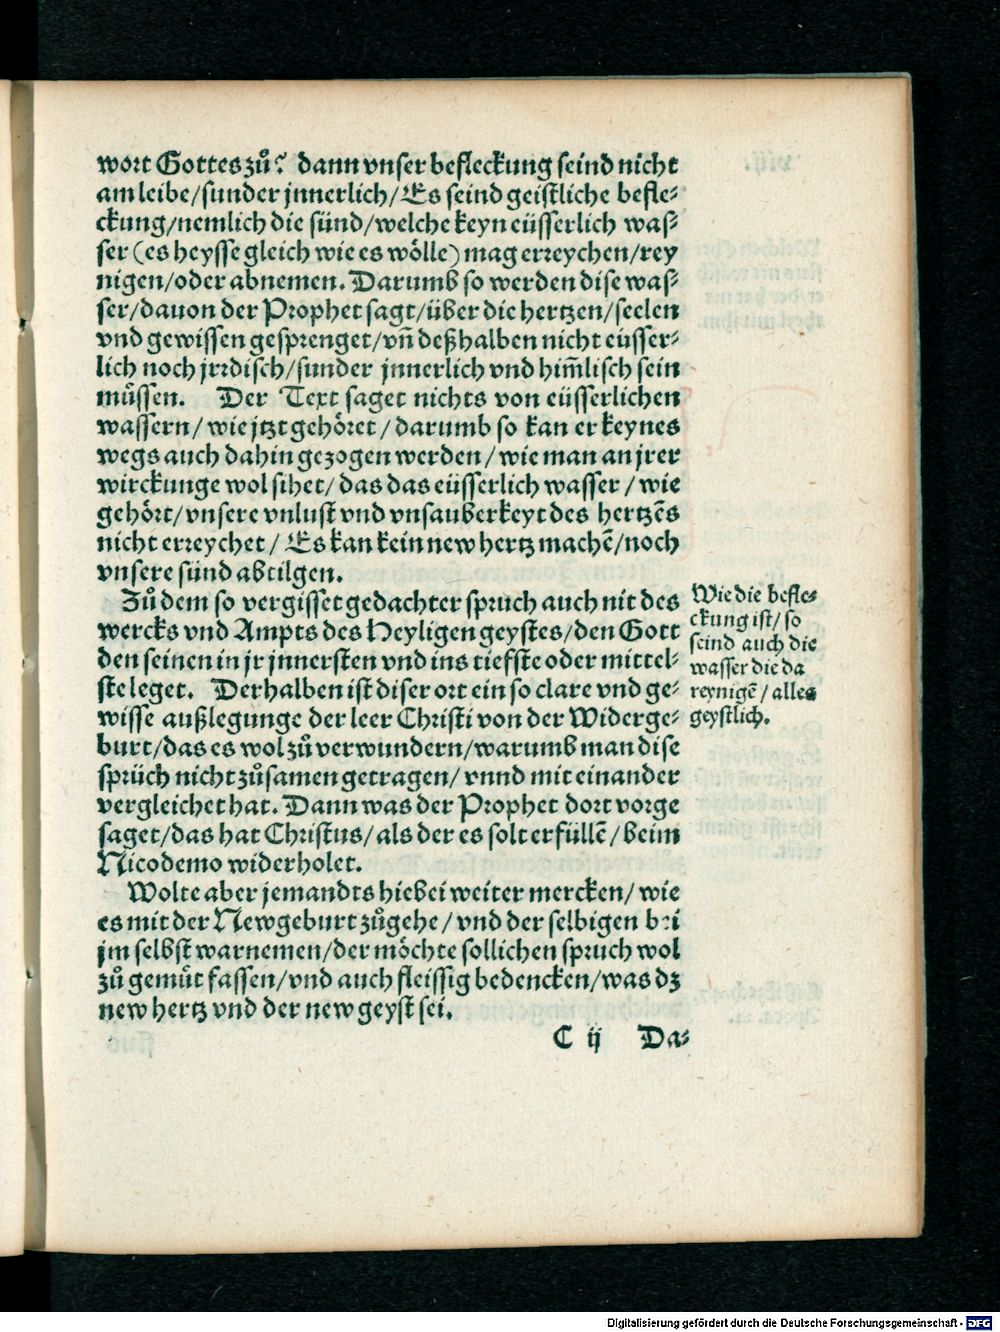 wort Gottes zů? dann vnser befleckung seind nicht
am leibe/sunder jnnerlich/Es seind geistliche befle⸗
ckung/nemlich die sünd/welche keyn eüsserlich was⸗
ser (es heysse gleich wie es wölle) mag erreychen/rey
nigen/oder abnemen. Darumb so werden dise was⸗
ser/dauon der Prophet sagt/über die hertzen/seelen
vnd gewissen gesprenget/vñ deßhalben nicht eüsser⸗
lich noch jrrdisch/sunder jnnerlich vnd him̃lisch sein
müssen. Der Text saget nichts von eüsserlichen
wassern/wie jtzt gehöret/darumb so kan er keynes
wegs auch dahin gezogen werden/wie man an jrer
wirckunge wol sihet/das das eüsserlich wasser/wie
gehört/vnsere vnlust vnd vnsauberkeyt des hertzẽs
nicht erreychet/Es kan kein new hertz machẽ/noch
vnsere sünd abtilgen.
Zů dem so vergisset gedachter spruch auch nit des
wercks vnd Ampts des Heyligen geystes/den Gott
den seinen in jr jnnersten vnd ins tiefste oder mittel⸗
ste leget. Derhalben ist diser ort ein so clare vnd ge⸗
wisse außlegunge der leer Christi von der Widerge⸗
burt/das es wol zů verwundern/warumb man dise
sprüch nicht zůsamen getragen/vnnd mit einander
vergleichet hat. Dann was der Prophet dort vorge
saget/das hat Christus/als der es solt erfüllẽ/beim
Nicodemo widerholet.
Wie die befle⸗
ckung ist/so
seind auch die
wasser die da
reynigẽ/alles
geystlich.
Wolte aber jemandts hiebei weiter mercken/wie
es mit der Newgeburt zůgehe/vnd der selbigen bei
jm selbst warnemen/der möchte sollichen spruch wol
zů gemüt fassen/vnd auch fleissig bedencken/was dz
new hertz vnd der new geyst sei.
C ij Da⸗
Digitalisierung gefördert durch die Deutsche Forschungsgemeinschaft - DFG